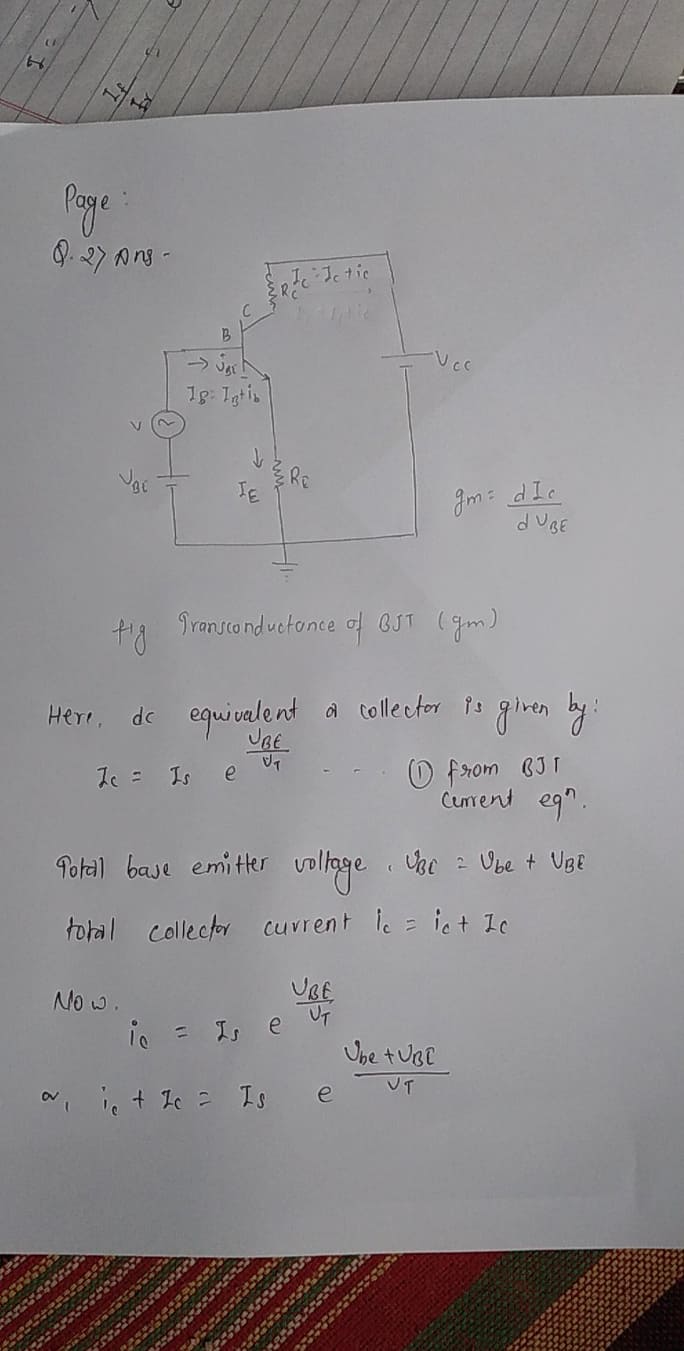 Page :
Q. 2> Ans -
R_C I_C = I_C + i_c
C
B
V_CC
→ V_BE
I_B = I_B + i_b
V
V_BE
↓
I_E
R_E
gm = dI_c / dV_BE
fig Transconductance of BJT (gm)
Here, dc equivalent a collector is given by:
I_c = I_s e^(V_BE / V_T) - - - ① from BJT
Current eqⁿ.
Total base emitter voltage, V_BE = V_be + V_BE
total collector current i_c = i_c + I_C
Now,
i_c = I_s e^(V_BE / V_T)
or, i_c + I_C = I_s e^((V_be + V_BE) / V_T)